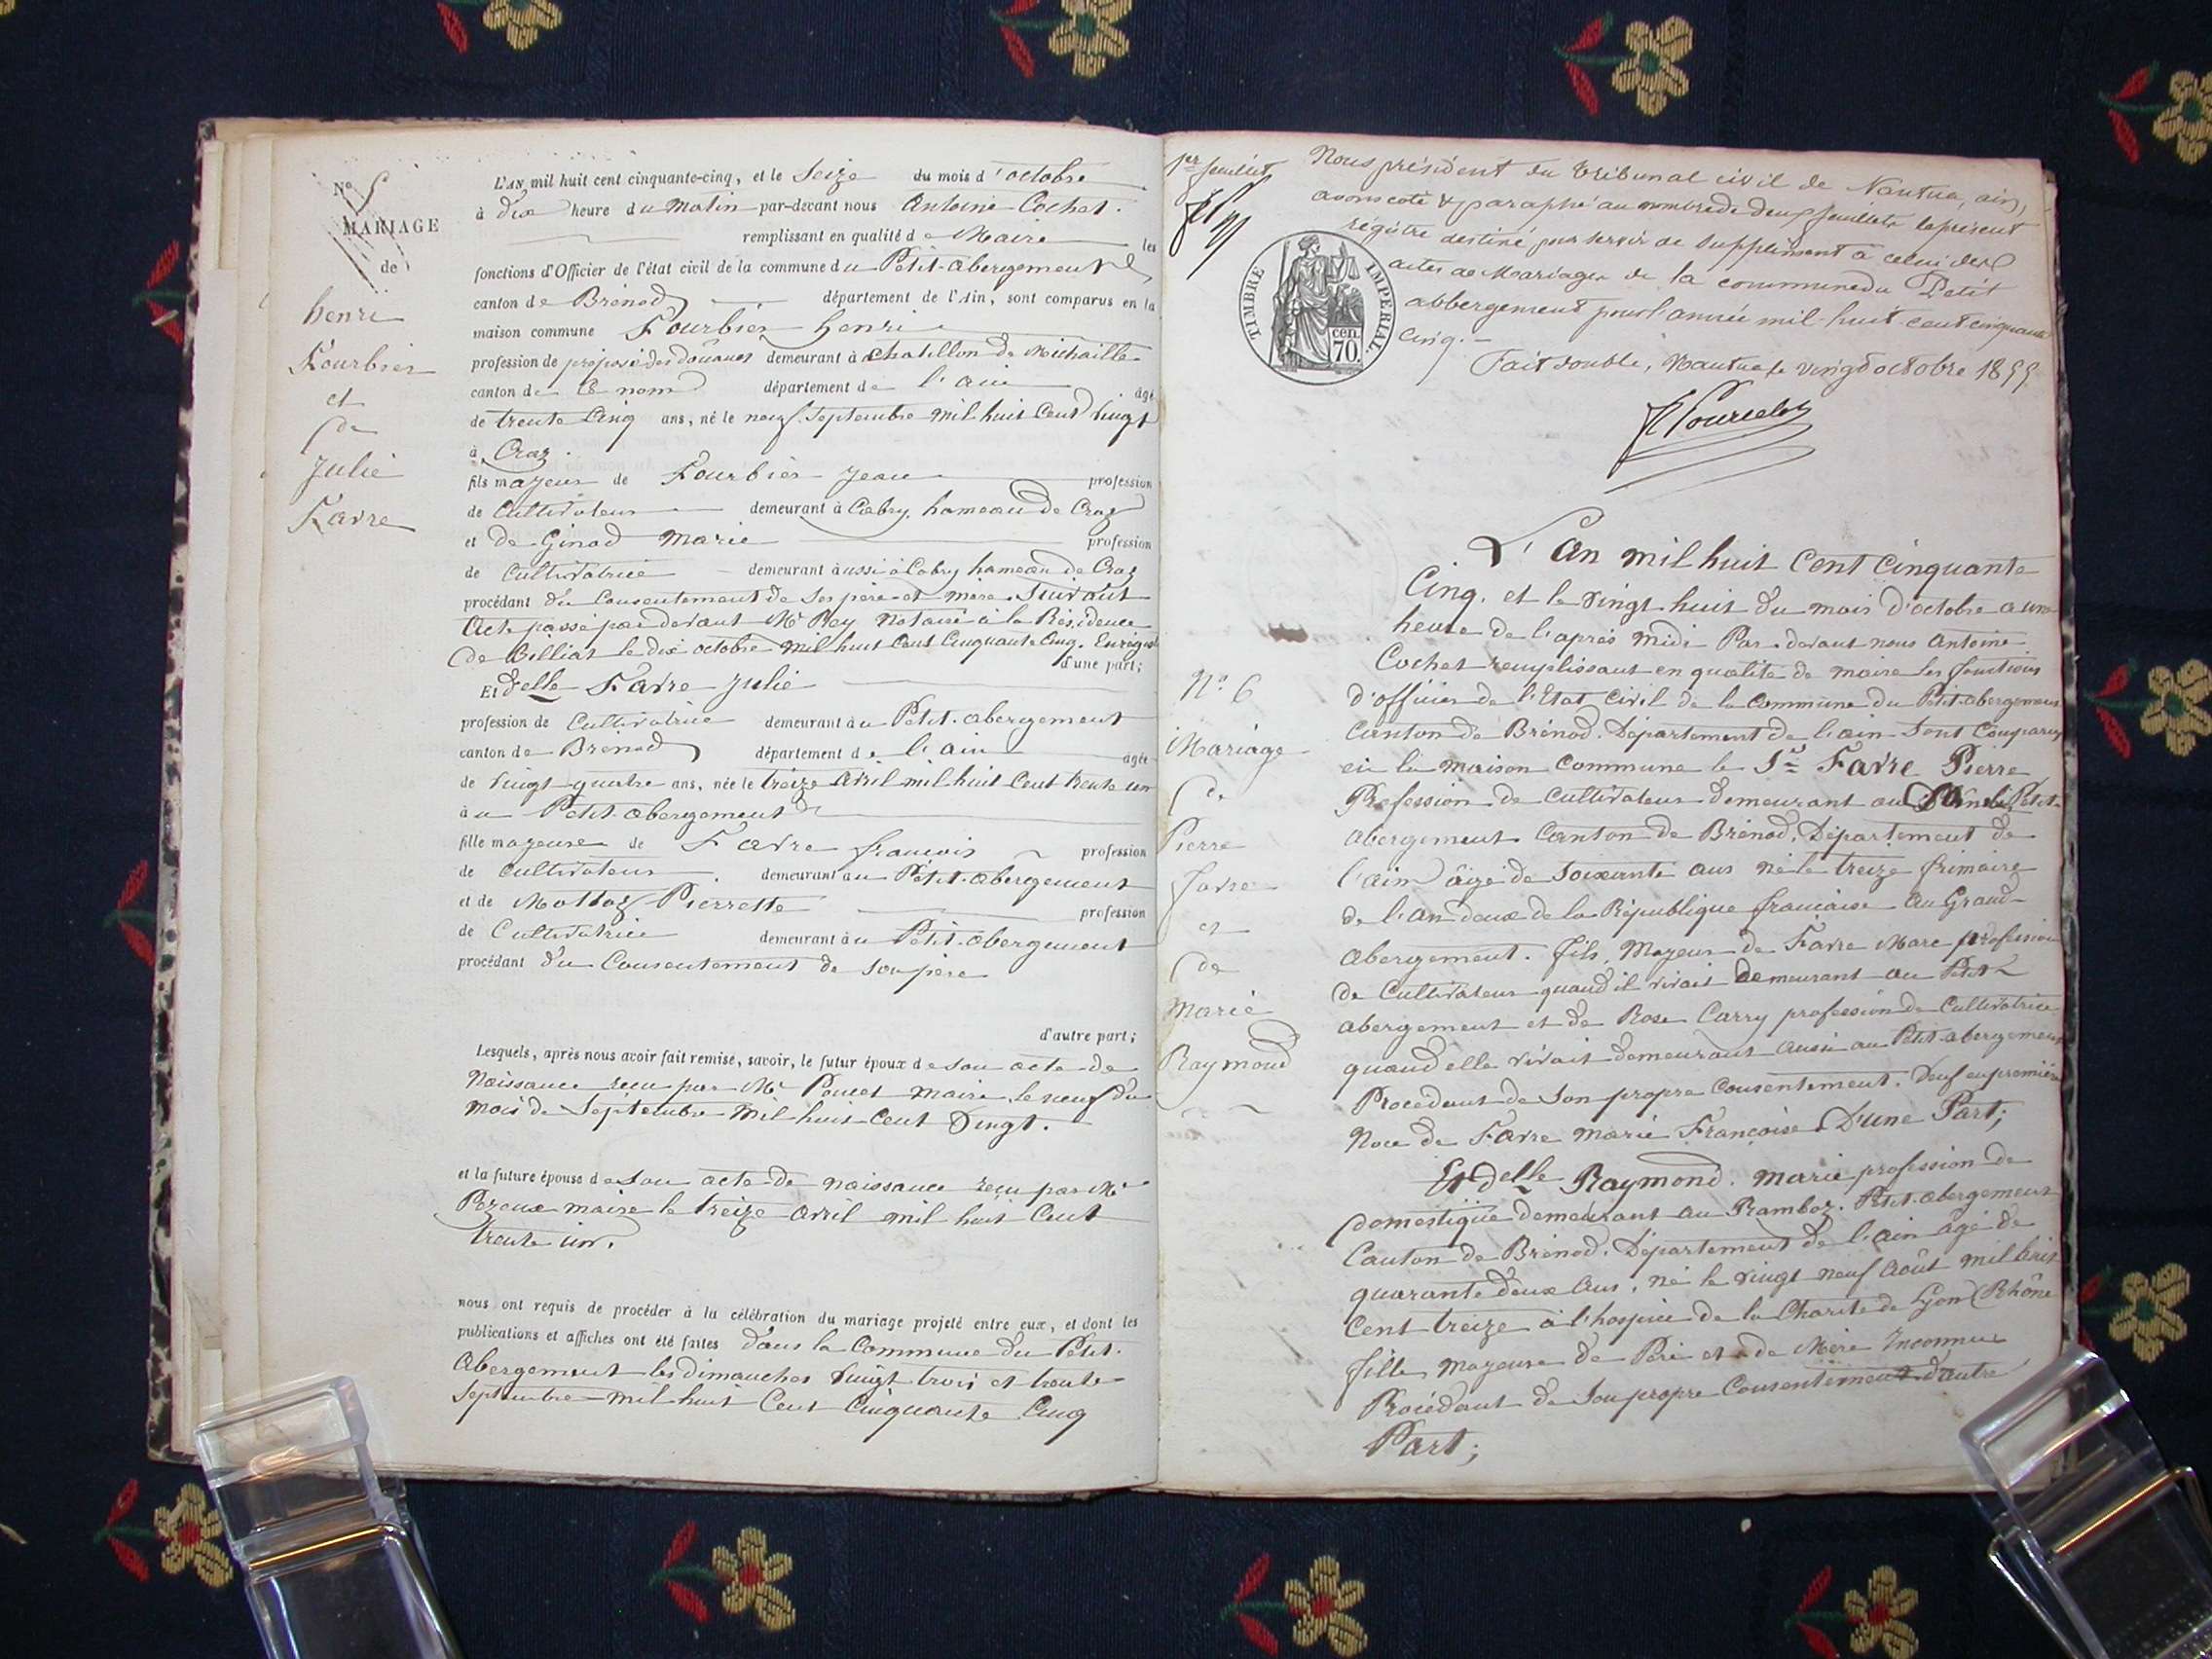 N° 5
MARIAGE
de
henri
Fourbier
et
de
Julie
Favre
L'AN mil huit cent cinquante-cinq, et le Seize du mois d'octobre
à dix heure du Matin par-devant nous Antoine Cochet.
remplissant en qualité de Maire les
fonctions d'Officier de l'état civil de la commune du Petit-abergement
canton de Brénod département de l'Ain, sont comparus en la
maison commune Fourbier henri
profession de préposé des douanes demeurant à chatillon de Michaille
canton de Ce nom département de l'ain âgé
de trente Cinq ans, né le neuf Septembre mil huit Cent Vingt
à Craz.
fils majeur de Fourbier Jean profession
de Cultivateur demeurant à Cobry, hameau de Craz
et de Ginod Marie profession
de Cultivatrice demeurant aussi à Cobry hameau de Craz
procédant du Consentement de Ses père et mère. Suivant
Acte passé par devant Mr Rey Notaire à la Résidence
de Billiat le dix octobre mil huit Cent Cinquante Cinq.
d'une part;
Et delle Favre Julie
profession de Cultivatrice demeurant au Petit-abergement
canton de Brénod département de l'ain âgée
de Vingt-quatre ans, née le treize Avril mil huit Cent trente un
au Petit-abergement
fille majeure de Favre françois profession
de Cultivateur demeurant au Petit-abergement
et de Mottaz Pierrette profession
de Cultivatrice demeurant au Petit-abergement
procédant du Consentement de Son père
d'autre part;
Lesquels, après nous avoir fait remise, savoir, le futur époux de son acte de
Naissance reçu par Mr Poncet maire, le neuf du
mois de Septembre mil huit Cent Vingt.
et la future épouse de son acte de naissance reçu par Mr
maire le treize Avril mil huit Cent
trente un.
nous ont requis de procéder à la célébration du mariage projeté entre eux, et dont les
publications et affiches ont été faites dans la Commune du Petit-
Abergement les dimanches Vingt trois et trente
Septembre mil huit Cent Cinquante Cinq
1er feuillet
Nous président du tribunal civil de Nantua, ain,
avons coté & paraphé au nombre de deux feuillets le présent
régistre destiné pour servir de supplément à celui des
actes de Mariages de la commune du Petit
abbergement pour l'année mil-huit-cent cinquante
cinq.
Fait double, Nantua le vingt octobre 1855
TIMBRE IMPÉRIAL.
cen.
70.
N° 6
Mariage
de
Pierre
favre
et
de
Marie
Raymond
L'an mil huit Cent Cinquante
Cinq. et le Vingt huit du mois d'octobre a une
heure de l'après midi Par-devant nous Antoine
Cochet remplissant en qualité de maire les fonctions
d'officier de l'Etat Civil de la Commune du Petit-abergement
Canton de Brénod. Département de l'ain Sont Comparus
en la maison Commune le Sr Favre Pierre
Profession de Cultivateur demeurant au Petit-
abergement Canton de Brénod. Département de
l'ain âgé de Soixante ans né le treize frimaire
de l'an deux de la République française Au Grand-
Abergement. fils Majeur de Favre Marc profession
de Cultivateur quand il vivait demeurant au Petit
abergement et de Rose Carry profession de Cultivatrice
quand elle vivait demeurant aussi au Petit-abergement
Procédant de Son propre Consentement. Veuf en première
Noce de Favre Marie Françoise D'une Part;
Et delle Raymond. Marie profession de
domestique demeurant au Ramboz. Petit-abergement
Canton de Brénod. Département de l'ain âgé de
quarante deux Ans. né le vingt neuf Août mil huit
Cent treize à l'hospice de la Charité de Lyon (Rhône
fille majeure de Père et de Mère Inconnue
Procédant de Son propre Consentement d'autre
Part;